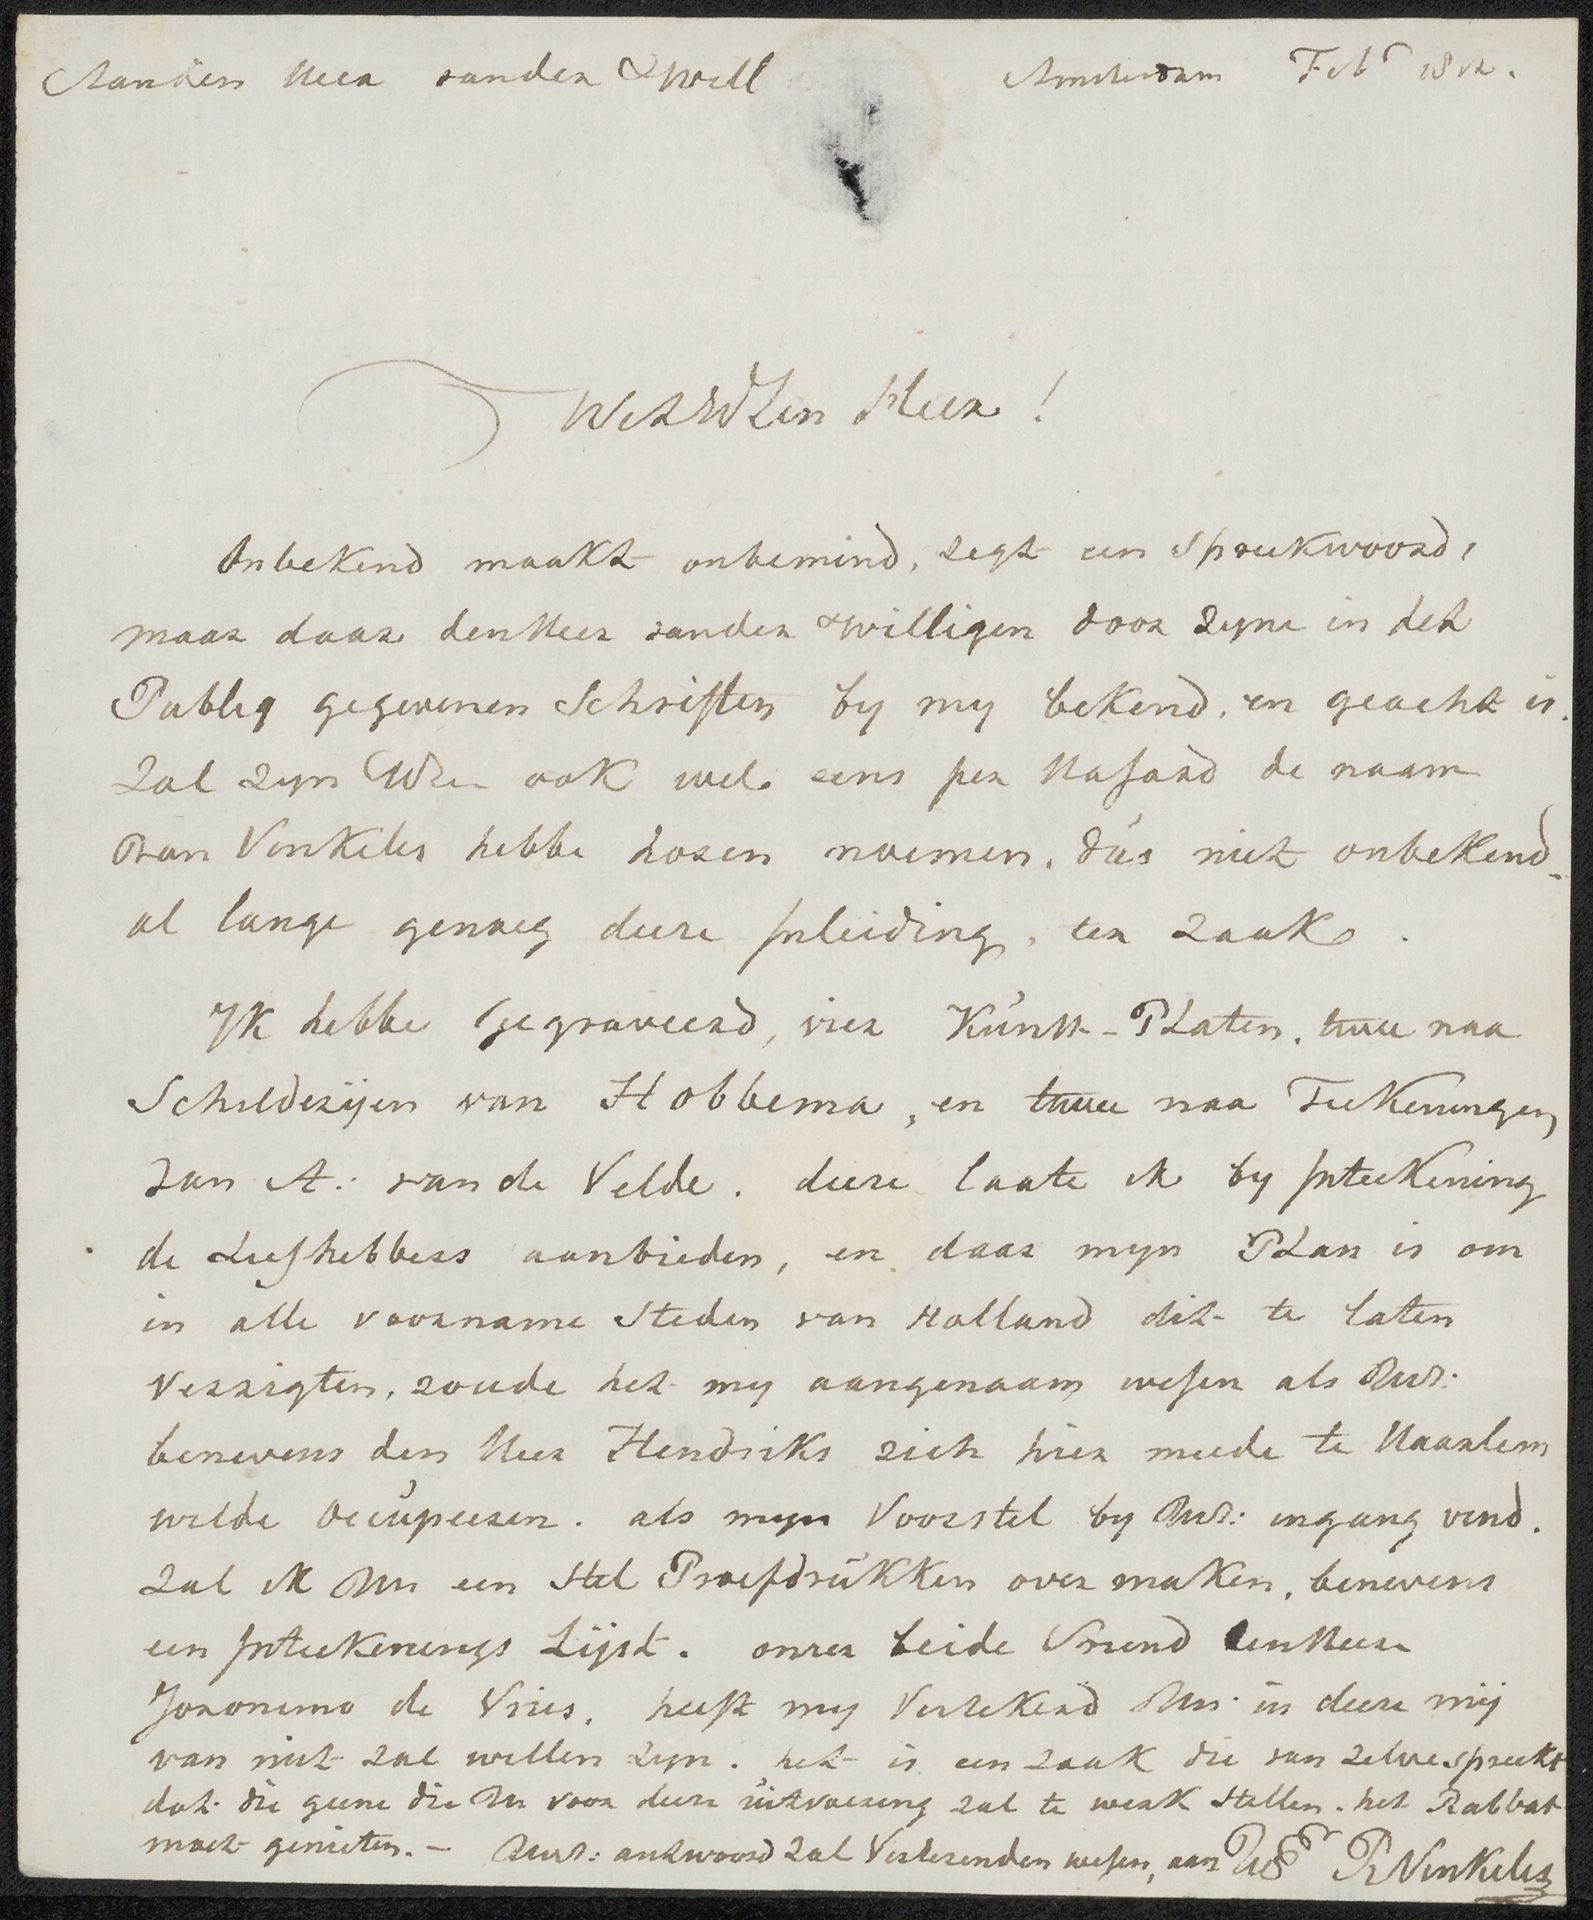 Aanden Heer vander Will
Amsterdam Febr 1812.
WelEdlen Heer!
Onbekend maakt onbemind, zegt een Spreekwoord,
maar daar den Heer vander Willigen door Zyne in het
Publiq gegevenen Schriften by my bekend, en geacht is.
Zal Zyn ook wel eens per Hasard de naam
van Vinkeles hebbe horen noemen. dús niet onbekend
al lange genoeg deeze Inleiding, ter Zaak.
Ik hebbe Gegraveerd, vier Kúnst-Platen, twee naa
Schilderÿen van Hobbema, en twee naa Teekeningen
van A: van de Velde. deeze laate ik by Inteekening
de Liefhebbers aanbieden, en daar myn Plan is om
in alle voorname Steden van Holland dit te laten
Verrigten, zoude het my aangenaam wesen als UwE:
benevens den Heer Hendriks zich hier meede te Haarlem
wilde Occúpeeren. als myn Voorstel by UwE: ingang vind.
Zal ik Uw een Stel Proefdrúkken over maken, benevens
een Inteekenings Lÿst. onzer beide Vriend den Heer
Joronimo de Vries, heeft my Verzekerd Uw in deeze mÿ
van nut zal willen Zyn. het is een Zaak die van Zelve spreekt
dat die geene die Uw voor deeze úitvoering zal te werk Stellen. het Rabbat
moet genieten. - Uws: antwoord Zal Vereerenden wesen, aan R Vinkeles